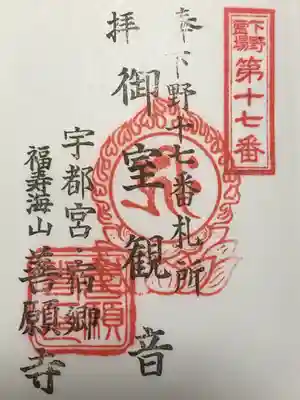 下野
霊場
第十七番
奉
拝
下野十七番札所
御室観音
宇都宮宿郷
福寿海山
善願寺